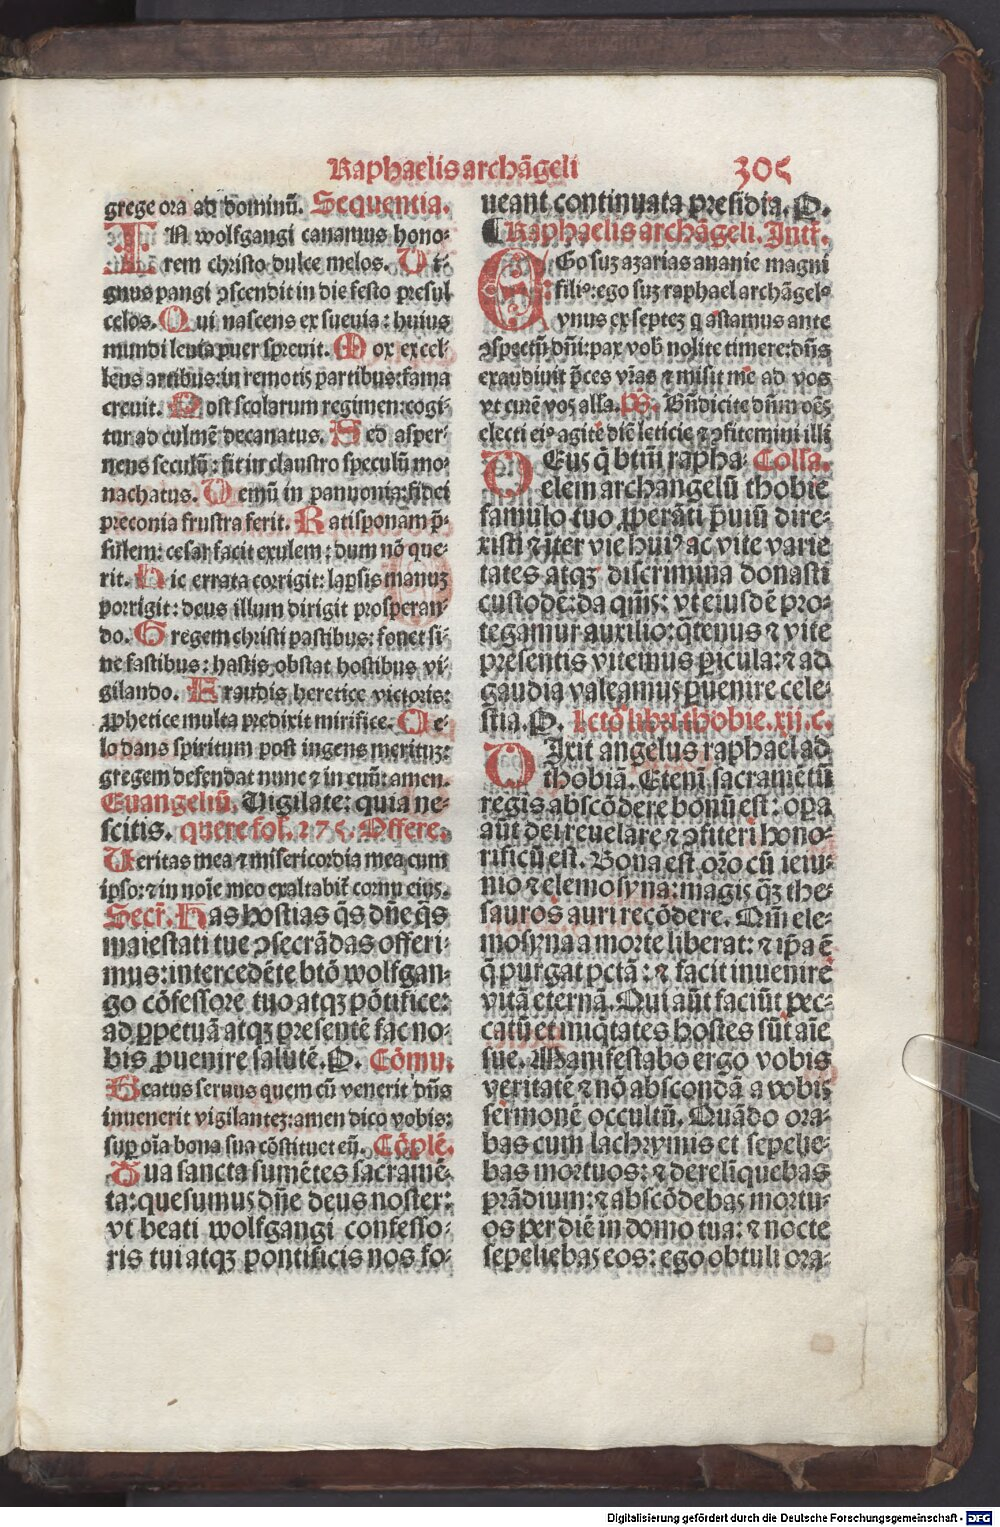 Raphaelis archāgeli 305
grege ora ad dominū. Sequentia.
IN wolfgangi canamus hono-
rem christo dulce melos. Di-
gnus pangi ꝯscendit in die festo presul
celos. Qui nascens ex sueuia: huius
mundi leuia puer spreuit. Mox excel-
lens artibus: in remotis partibus: fama
creuit. Post scolarum regimen: cogi-
tur ad culmē decanatus. Sed asper-
nens seculū: fit in claustro speculū mo-
nachatus. Demū in pannonia: fidei
preconia frustra serit. Ratisponam p̄-
sulem: cesar facit exulem: dum nō que-
rit. Hic errata corrigit: lapsis manuʒ
porrigit: deus illum dirigit prosperan-
do. Gregem christi pastibus: fouet si-
ne fastibus: hastis obstat hostibus vi-
gilando. Eraudis heretice victoris:
ꝓphetice multa predixit mirifice. Ce-
lo dans spiritum post ingens merituʒ:
gregem defendat nunc ⁊ in euū: amen.
Euangeliū. Vigilate: quia ne-
scitis. quere fol. 275. Offere.
Veritas mea ⁊ misericordia mea cum
ipso: ⁊ in noīe meo exaltabit̄ cornu eius.
Secr̄. Has hostias q̄s dn̄e q̄s
maiestati tue ꝯsecrādas offeri-
mus: intercedēte btō wolfgan-
go cōfessore tuo atqꝫ pōtifice:
ad ꝑpetuā atqꝫ presentē fac no-
bis ꝑuenire salutē. P. Cōmu.
Beatus seruus quem cū venerit dn̄s
inuenerit vigilanteʒ: amen dico vobis:
suꝑ oīa bona sua cōstituet eū. Cōplē.
Tua sancta sumētes sacramē-
ta: quesumus dn̄e deus noster:
vt beati wolfgangi confesso-
ris tui atqꝫ pontificis nos fo-
ueant continuata presidia. P.
¶ Raphaelis archāgeli. Intr̄.
EGo suʒ azarias ananie magni
filiꝰ: ego suʒ raphael archāgelꝰ
vnus ex septeʒ q astamus ante
ꝯspectū dn̄i: pax vob̄ nolite timere: dn̄s
exaudiuit p̄ces vr̄as ⁊ misit me ad vos
vt curē vos alla. Ps. Bn̄dicite dn̄m oēs
electi eiꝰ agite diē leticie ⁊ ꝯfitemini illi
DEus q̄ btm̄ rapha- Colla.
elem archangelū thobie
famulo tuo ꝓperāti p̄uiū dire-
xisti ⁊ īter vie huiꝰ ac vite varie
tates atqꝫ discrimina donasti
custodē: da qm̄s: vt eiusdē pro-
tegamur auxilio: q̄tenus ⁊ vite
presentis vitemus ꝑicula: ⁊ ad
gaudia valeamus ꝑuenire cele-
stia. P. Lctō libri thobie. xij. c.
DIxit angelus raphael ad
thobiā. Etenī sacrametū
regis abscōdere bonū est: oꝑa
aūt dei reuelare ⁊ ꝯfiteri hono-
rificū est. Bona est orō cū ieiu-
nio ⁊ elemosyna: magis qꝫ the-
sauros auri recōdere. Qm̄ ele-
mosyna a morte liberat: ⁊ ip̄a ē
q̄ purgat pctā: ⁊ facit inuenire
vitā eternā. Qui aūt faciūt pec-
catū et iniqtates hostes sūt aīe
sue. Manifestabo ergo vobis
veritatē ⁊ nō abscondā a vobis
sermonē occultū. Quādo ora-
bas cum lachrymis et sepelie-
bas mortuos: ⁊ derelīquebas
prādium: ⁊ abscōdebas mortu-
os per diē in domo tua: ⁊ nocte
sepeliebas eos: ego obtuli ora-
Digitalisierung gefördert durch die Deutsche Forschungsgemeinschaft - DFG